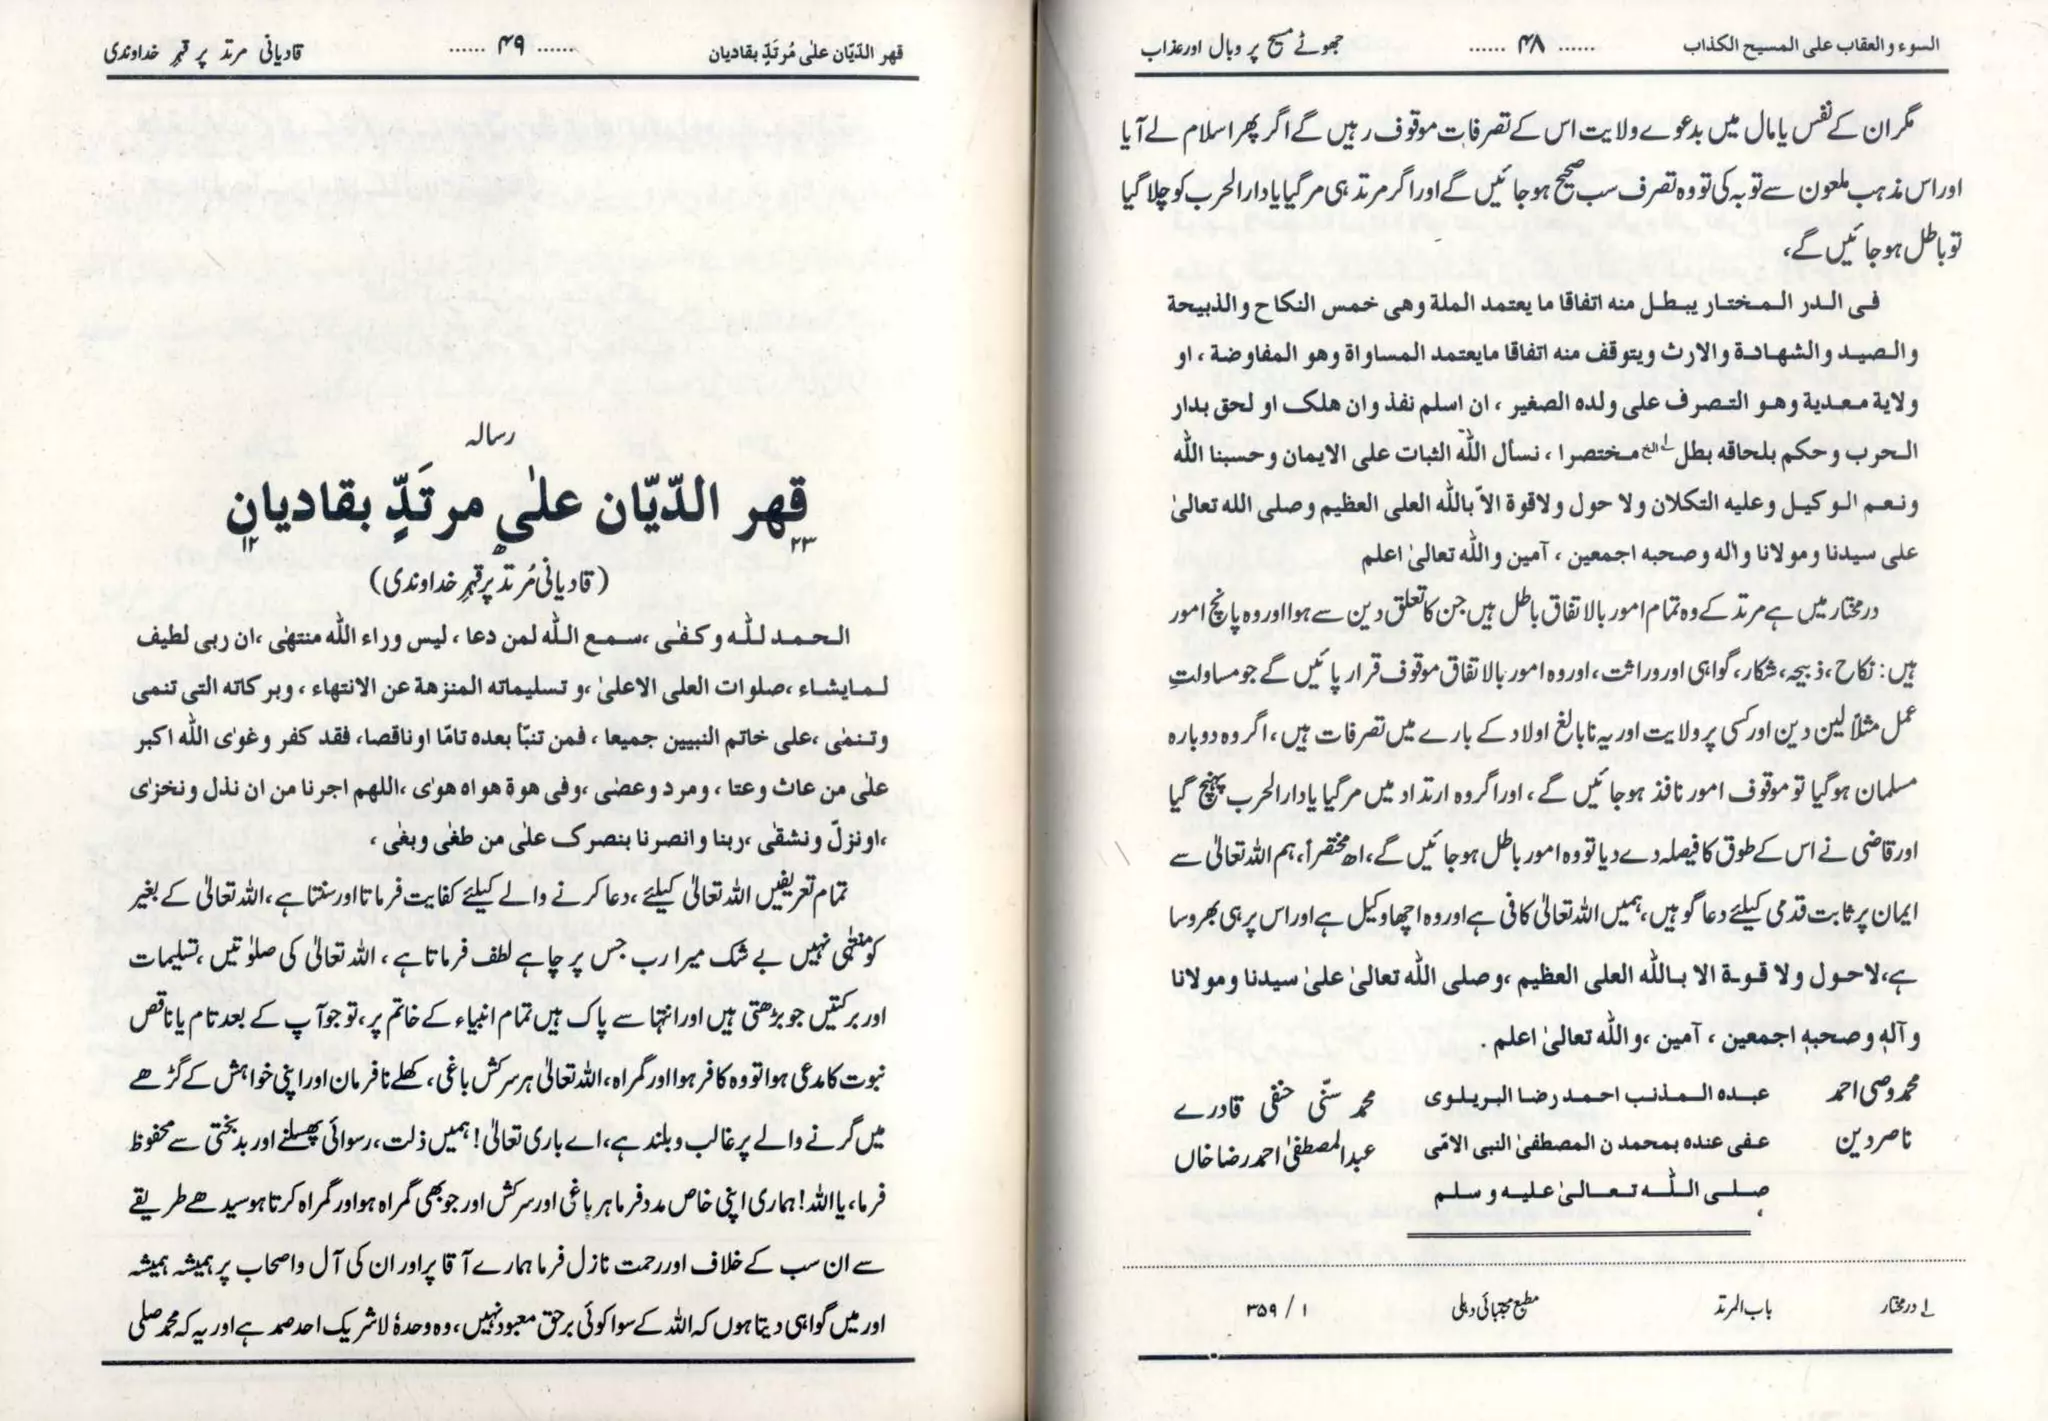 السوء والعقاب على المسيح الكذاب ...... ۴۸ ...... جھوٹے مسیح پر وبال اور عذاب
مگر ان کے نفس یا مال میں بدعوے ولایت اس کے تصرفات موقوف رہیں گے اگر پھر اسلام لے آیا
اور اس مذہب ملعون سے توبہ کی تو وہ تصرف سب صحیح ہوجائیں گے اور اگر مرتد ہی مرگیا یا دارالحرب کو چلا گیا
تو باطل ہوجائیں گے،
فی الدر المختار یبطل منه اتفاقا ما یعتمد الملة وهی خمس النکاح والذبیحة
والصید والشهادة والارث ویتوقف منه اتفاقا مایعتمد المساواة وهو المفاوضة، او
ولایة معدیة وهو التصرف علی ولده الصغیر، ان اسلم نفذ وان هلک او لحق بدار
الحرب وحکم بلحاقه بطل ۱؎ الخ مختصرا، نسأل اللّٰه الثبات علی الایمان وحسبنا اللّٰه
ونعم الوکیل وعلیه التکلان ولا حول ولاقوة الاّ باللّٰه العلی العظیم وصلی الله تعالیٰ
علی سیدنا ومولانا واٰله وصحبه اجمعین، آمین واللّٰه تعالیٰ اعلم
درمختار میں ہے مرتد کے وہ تمام امور بالاتفاق باطل ہیں جن کا تعلق دین سے ہو اور وہ پانچ امور
ہیں: نکاح، ذبیحہ، شکار، گواہی اور وراثت، اور وہ امور بالاتفاق موقوف قرار پائیں گے جو مساواتِ
عمل مثلاً لین دین اور کسی پر ولایت اور یہ نابالغ اولاد کے بارے میں تصرفات ہیں، اگر وہ دوبارہ
مسلمان ہوگیا تو موقوف امور نافذ ہوجائیں گے، اور اگر وہ ارتداد میں مرگیا یا دارالحرب پہنچ گیا
اور قاضی نے اس کے طوق کا فیصلہ دے دیا تو وہ امور باطل ہوجائیں گے، اھ مختصراً، ہم اللہ تعالیٰ سے
ایمان پر ثابت قدمی کیلئے دعا گو ہیں، ہمیں اللہ تعالیٰ کافی ہے اور وہ اچھا وکیل ہے اور اس پر ہی بھروسا
ہے، لاحول ولا قوة الا باللّٰه العلی العظیم، وصلی اللّٰه تعالیٰ علیٰ سیدنا ومولانا
وآلهٖ وصحبهٖ اجمعین، آمین، واللّٰه تعالیٰ اعلم.
محمد وصی احمد عبده المذنب احمد رضا البریلوی محمد سنّی حنفی قادرے
ناصر دین عفی عنه بمحمدن المصطفیٰ النبی الامّی عبدالمصطفیٰ احمد رضا خاں
صلی اللّٰه تعالیٰ علیه وسلم
۱؎ درمختار باب المرتد مطبع مجتبائی دہلی ۱/ ۳۵۹
قهر الدّیّان علیٰ مُرتَدٍّ بقادیان ...... ۴۹ ...... قادیانی مرتد پر قہرِ خداوندی
رسالہ
قهر الدّیّان علیٰ مرتَدٍّ بقادیان
۲۳ ۱۳ھ
(قادیانی مُرتد پر قہرِ خداوندی)
الحمد للّٰه وکفٰی، سمع اللّٰه لمن دعا، لیس وراء اللّٰه منتهٰی، ان ربی لطیف
لمایشاء، صلوات العلی الاعلیٰ، و تسلیماته المنزهة عن الانتهاء، وبرکاته التی تنمی
وتنمٰی، علی خاتم النبیین جمیعا، فمن تنبّأ بعده تامّا اوناقصا، فقد کفر وغوٰی اللّٰه اکبر
علٰی من عاث وعتا، ومرد وعصٰی، وفی هوة هواه هوٰی، اللهم اجرنا من ان نذل ونخزٰی
، اونزلّ ونشقٰی، ربنا وانصرنا بنصرک علٰی من طغٰی وبغٰی،
تمام تعریفیں اللہ تعالیٰ کیلئے، دعا کرنے والے کیلئے کفایت فرماتا اور سنتا ہے، اللہ تعالیٰ کے بغیر
کو منتہٰی نہیں بے شک میرا رب جس پر چاہے لطف فرماتا ہے، اللہ تعالیٰ کی صلوٰتیں، تسلیمات
اور برکتیں جو بڑھتی ہیں اور انتہا سے پاک ہیں تمام انبیاء کے خاتم پر، تو جو آپ کے بعد تام یا ناقص
نبوت کا مدعی ہوا تو وہ کافر ہوا اور گمراہ، اللہ تعالیٰ ہر سرکش باغی، کھلے نافرمان اور اپنی خواہش کے گڑھے
میں گرنے والے پر غالب و بلند ہے، اے باری تعالیٰ! ہمیں ذلت، رسوائی پھسلنے اور بدبختی سے محفوظ
فرما، یا اللہ! ہماری اپنی خاص مدد فرما ہر باغی اور سرکش اور جو بھی گمراہ ہو اور گمراہ کرتا ہو سیدھے طریقے
سے ان سب کے خلاف اور رحمت نازل فرما ہمارے آقا پر اور ان کی آل واصحاب پر ہمیشہ ہمیشہ
اور میں گواہی دیتا ہوں کہ اللہ کے سوا کوئی برحق معبود نہیں، وہ وحدہٗ لاشریک احد صمد ہے اور یہ کہ محمد صلی